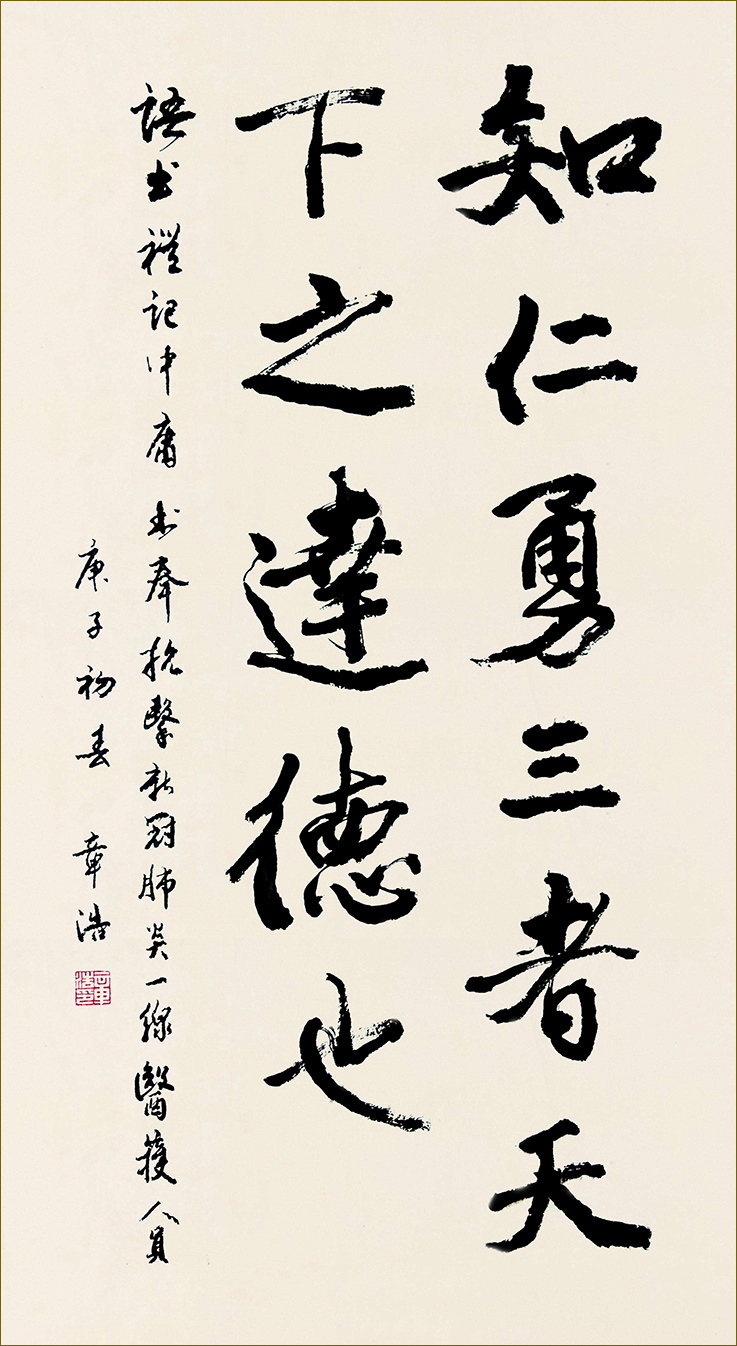 知仁勇三者天
下之達德也
語出禮記中庸 书奉抗擊新冠肺炎一線醫護人員
庚子初春 章浩